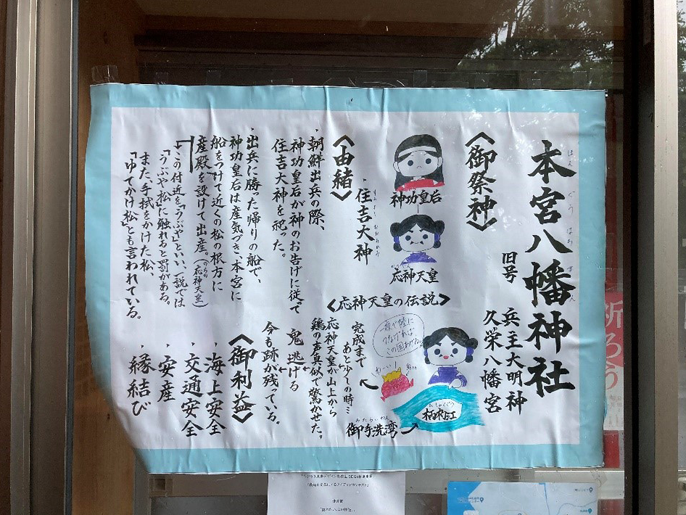 本宮八幡神社
旧号
兵主大明神
久栄八幡宮
〈御祭神〉
神功皇后
応神天皇
・住吉大神
〈由緒〉
・朝鮮出兵の際、
神功皇后が神のお告げに従って
住吉大神を祀った。
・出兵に勝った帰りの船で、
神功皇后は産気づき、本宮に
船をつけて近くの松の根方に
産殿を設けて出産(応神天皇)
「この付近を「うぶや」といい、一説では
「うぶや松」に触れると罰がある。
また手拭をかけた松、
「ゆてかけ松」とも言われている。
〈応神天皇の伝説〉
完成まで
あと少しの時…
応神天皇が山上から
鶏の声真似で驚かせた。
鬼逃げる
今も跡が残っている。
御手洗湾
〈御利益〉
・海上安全
・交通安全
・安産
・縁結び
祈ろう